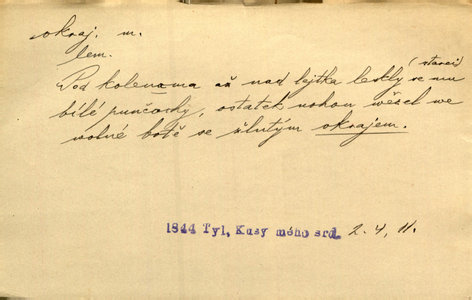 okraj, m.
lem.
(starci)
Pod kolenama až nad lejtka leskly se mu
bílé punčochy, ostatek nohou vězel ve
volné botě se žlutým okrajem.
1844 Tyl, Kusy mého srd. 2. 4, 11.